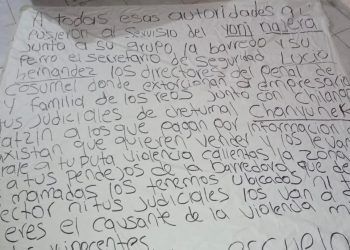 A todas esas autoridades q
Pusieron al servisio del Yoni najera
Junto a su grupo la barredo y su
Perro el secretario de seguridad Lucio
hernandez los directores del penal de
cosumel donde extorcionan a empresario
y familia de los reos junto con chilango
tus Judiciales de chetumal Chanyunek
atzin a los que pagan por informacion
existan que quieren vender y los levan
rale a tu puta violencia calientas la zona
a tus pendejos de la barredora que de
mamados los tenemos uvicados ni
ector ni tus Judiciales los van a
eres el causante de la violencia
inocentes